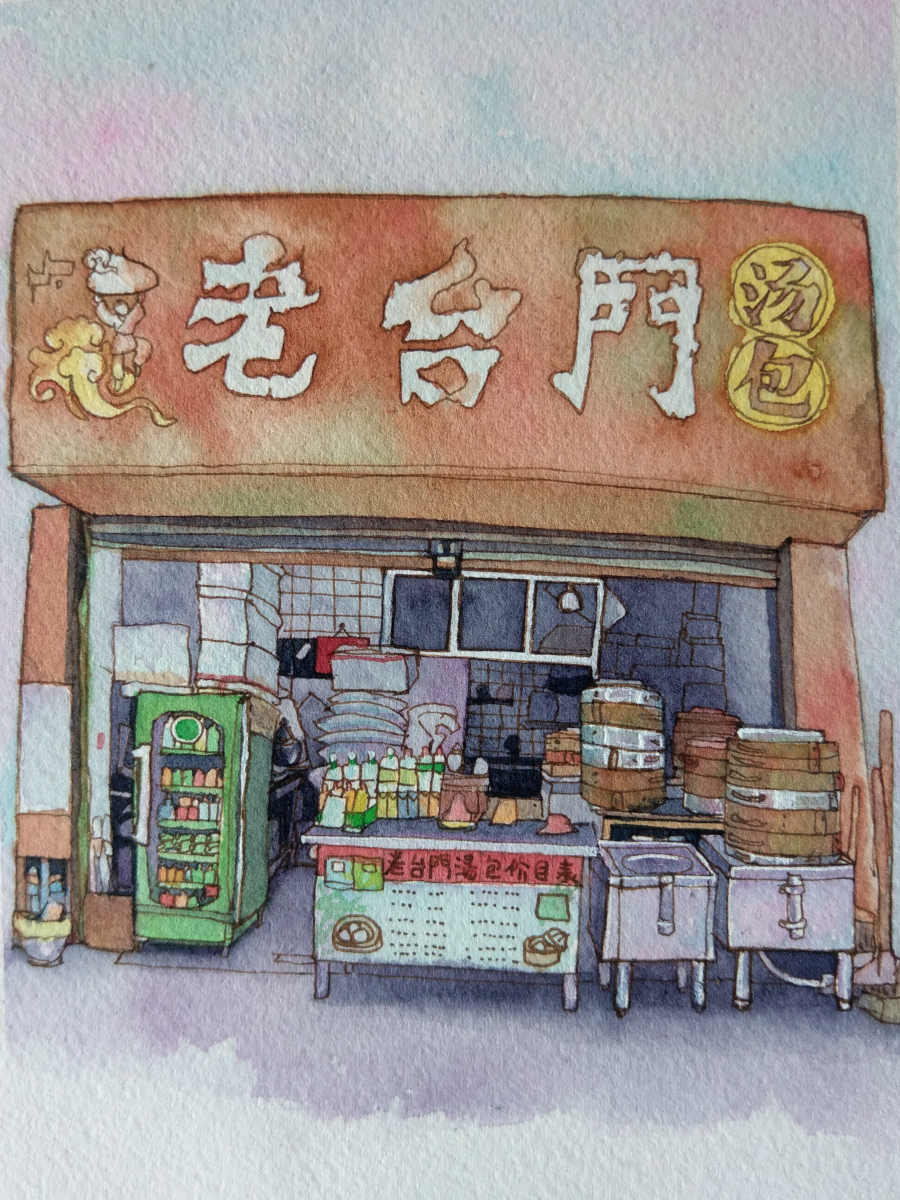 老台門
汤包
老台門湯包价目表